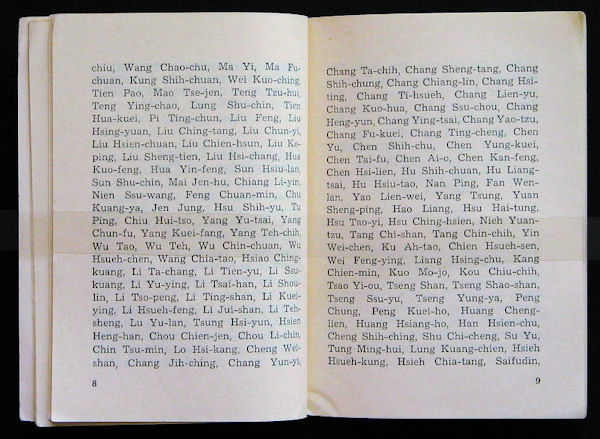 chiu, Wang Chao-chu, Ma Yi, Ma Fu-
chuan, Kung Shih-chuan, Wei Kuo-ching,
Tien Pao, Mao Tse-jen, Teng Tzu-hui,
Teng Ying-chao, Lung Shu-chin, Tien
Hua-kuei, Pi Ting-chun, Liu Feng, Liu
Hsing-yuan, Liu Ching-tang, Liu Chun-yi,
Liu Hsien-chuan, Liu Chien-hsun, Liu Ke-
ping, Liu Sheng-tien, Liu Hsi-chang, Hua
Kuo-feng, Hua Yin-feng, Sun Hsiu-lan,
Sun Shu-chin, Mai Jen-hu, Chiang Li-yin,
Nien Ssu-wang, Feng Chuan-min, Chu
Kuang-ya, Jen Jung, Hsu Shih-yu, Tu
Ping, Chiu Hui-tso, Yang Yu-tsai, Yang
Chun-fu, Yang Kuei-fang, Yang Teh-chih,
Wu Tao, Wu Teh, Wu Chin-chuan, Wu
Hsueh-chen, Wang Chia-tao, Hsiao Ching-
kuang, Li Ta-chang, Li Tien-yu, Li Ssu-
kuang, Li Yu-ying, Li Tsai-han, Li Shou-
lin, Li Tso-peng, Li Ting-shan, Li Kuei-
ying, Li Hsueh-feng, Li Jui-shan, Li Teh-
sheng, Lu Yu-lan, Tsung Hsi-yun, Hsien
Heng-han, Chou Chien-jen, Chou Li-chin,
Chin Tsu-min, Lo Hsi-kang, Cheng Wei-
shan, Chang Jih-ching, Chang Yun-yi,
8
Chang Ta-chih, Chang Sheng-tang, Chang
Shih-chung, Chang Chiang-lin, Chang Hsi-
ting, Chang Ti-hsueh, Chang Lien-yu,
Chang Kuo-hua, Chang Ssu-chou, Chang
Heng-yun, Chang Ying-tsai, Chang Yao-tzu,
Chang Fu-kuei, Chang Ting-cheng, Chen
Yu, Chen Shih-chu, Chen Yung-kuei,
Chen Tai-fu, Chen Ai-o, Chen Kan-feng,
Chen Hsi-lien, Hu Shih-chuan, Hu Liang-
tsai, Hu Hsiu-tao, Nan Ping, Fan Wen-
lan, Yao Lien-wei, Yang Tsung, Yuan
Sheng-ping, Hao Liang, Hsu Hai-tung,
Hsu Tao-yi, Hsu Ching-hsien, Nieh Yuan-
tzu, Tang Chi-shan, Tang Chin-chih, Yin
Wei-chen, Ku Ah-tao, Chien Hsueh-sen,
Wei Feng-ying, Liang Hsing-chu, Kang
Chien-min, Kuo Mo-jo, Kou Chiu-chih,
Tsao Yi-ou, Tseng Shan, Tseng Shao-shan,
Tseng Ssu-yu, Tseng Yung-ya, Peng
Chung, Peng Kuei-ho, Huang Cheng-
lien, Huang Hsiang-ho, Han Hsien-chu,
Cheng Shih-ching, Shu Chi-cheng, Su Yu,
Tung Ming-hui, Lung Kuang-chien, Hsieh
Hsueh-kung, Hsieh Chia-tang, Saifudin,
9